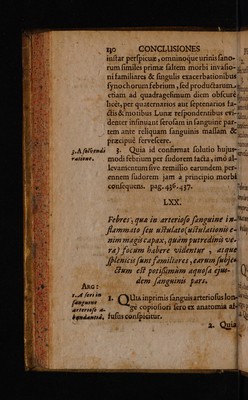 130 CONCLUSIONES
instar perspicuæ, omninoque urinis sano-
rum similes primæ saltem morbi invasio-
ni familiares & singulis exacerbationibus
synochorum febrium, sed productarum
etiam ad quadragesimum diem obscurè
licèt, per quaternarios aut septenarios ta-
ctis & motibus Lunæ respondentibus evi-
denter insinuant serosam in sanguine par-
tem ante reliquam sanguinis massam &
præcipuè fervescere.
3. A subeundi
ratione.
3. Quia id confirmat solutio hujus-
modi febrium per sudorem facta, imò al-
levamentum sive remissio earundem per-
ennem sudorem jam a principio morbi
consequens. pag. 436. 437.
LXX.
Febres, qua in arterioso sanguine in-
flammato seu ustulato (ustulationis e-
nim magis capax, quàm putredinis ve-
ræ) focum habere videntur, atque
splenicis sunt familiares, earum subje-
ctum est potissimum aquosa ejus-
dem sanguinis pars.
ARG:
1. A seri in
sanguine
arterioso a-
bundantiâ.
1. QUia inprimis sanguis arteriosus lon-
ge copiosiori sero ex anatomia af-
fusus conspicitur.
2. Quia